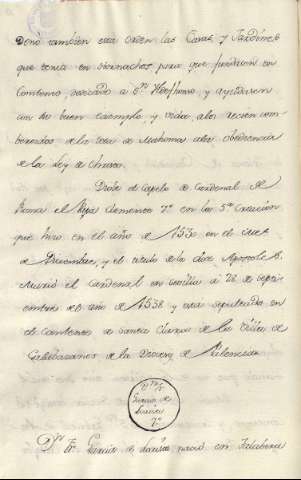 Donó tambien esta orden las Casas, y Jardines
que tenia en Hornachos para que fundasen un
Combento, dedicado a Sn Yldefonso, y ayudasen
con su buen exemplo, y vida, a los recien com-
bertidos de la secta de Mahoma a la obediencia
de la Ley de Christo.
Diole el Capelo de Cardenal de
Roma el Papa Clemente 7º en la 5ª Creacion
que hizo en el año de 1530 en el mes
de Diciembre, y el titulo de los doce Apostoles.
Murió el Cardenal en Sevilla a 26 de Septi-
embre del año de 1538 y está sepultado en
el Combento de Santa Clara de la Villa de
Calabazanos de la Diocesis de Palencia
Dn Fr
Garcia de
Loaisa
7º
Dn Fr. Garcia de Loaisa nació en Talabera